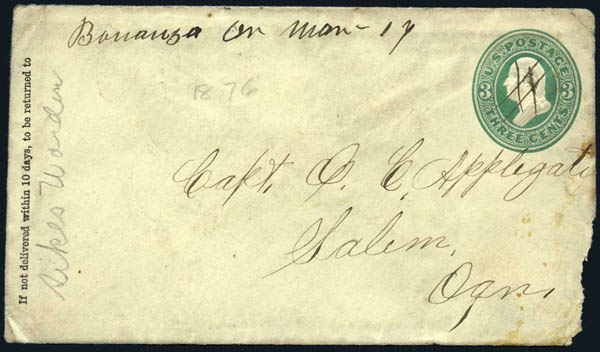 Bonanza Ogn Mar - 17
1876
U.S. POSTAGE
3 3
THREE CENTS
If not delivered within 10 days, to be returned to
Sikes Worden
Capt. O. C. Applegate
Salem,
Ogn,